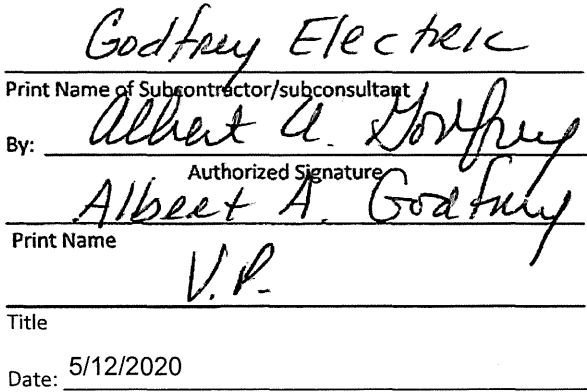 Godfrey Electric
Print Name of Subcontractor/subconsultant
By: Albert A. Godfrey
Authorized Signature
Albert A. Godfrey
Print Name
V.P.
Title
Date: 5/12/2020